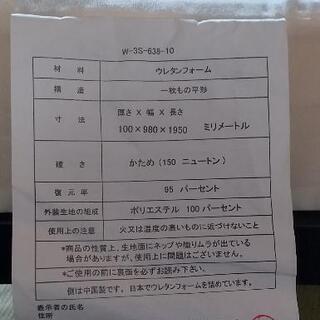 W-3S-638-10
材料 ウレタンフォーム
構造 一枚もの平形
寸法 厚さ X 幅 X 長さ
100×980×1950 ミリメートル
硬さ かため (150 ニュートン)
復元率 95 パーセント
外装生地の組成 ポリエステル 100 パーセント
使用上の注意 火又は温度の高いものに近づけないこと
*商品の性質上、生地面にネップや織りムラが出ている
場合がありますが、使用上に問題はございません。
*ご使用の前に裏面を必ずお読み下さい。
側は中国製です。日本でウレタンフォームを詰めています。
表示者の氏名
住所